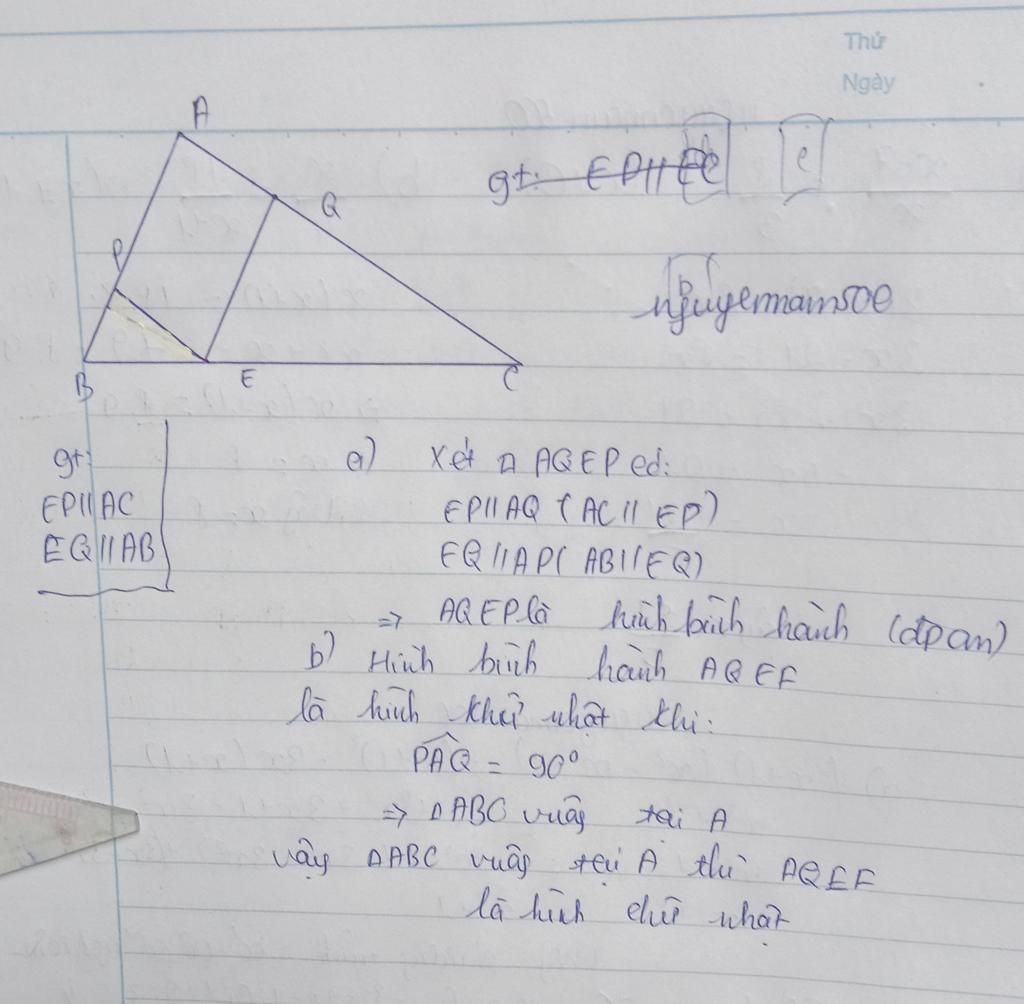 Thứ
Ngày
A
Q
P
B
E
C
gt: EP//
e
nguyenmamsoe
gt:
EP//AC
EQ//AB
a) Xét □ AQEP có:
EP//AQ (AC// EP)
EQ//AP( AB//EQ)
=> AQEP là hình bình hành (đpcm)
b) Hình bình hành AQEF
là hình chữ nhật khi:
PAQ = 90°
=> ΔABC vuông tại A
vậy ΔABC vuông tại A thì AQEF
là hình chữ nhật